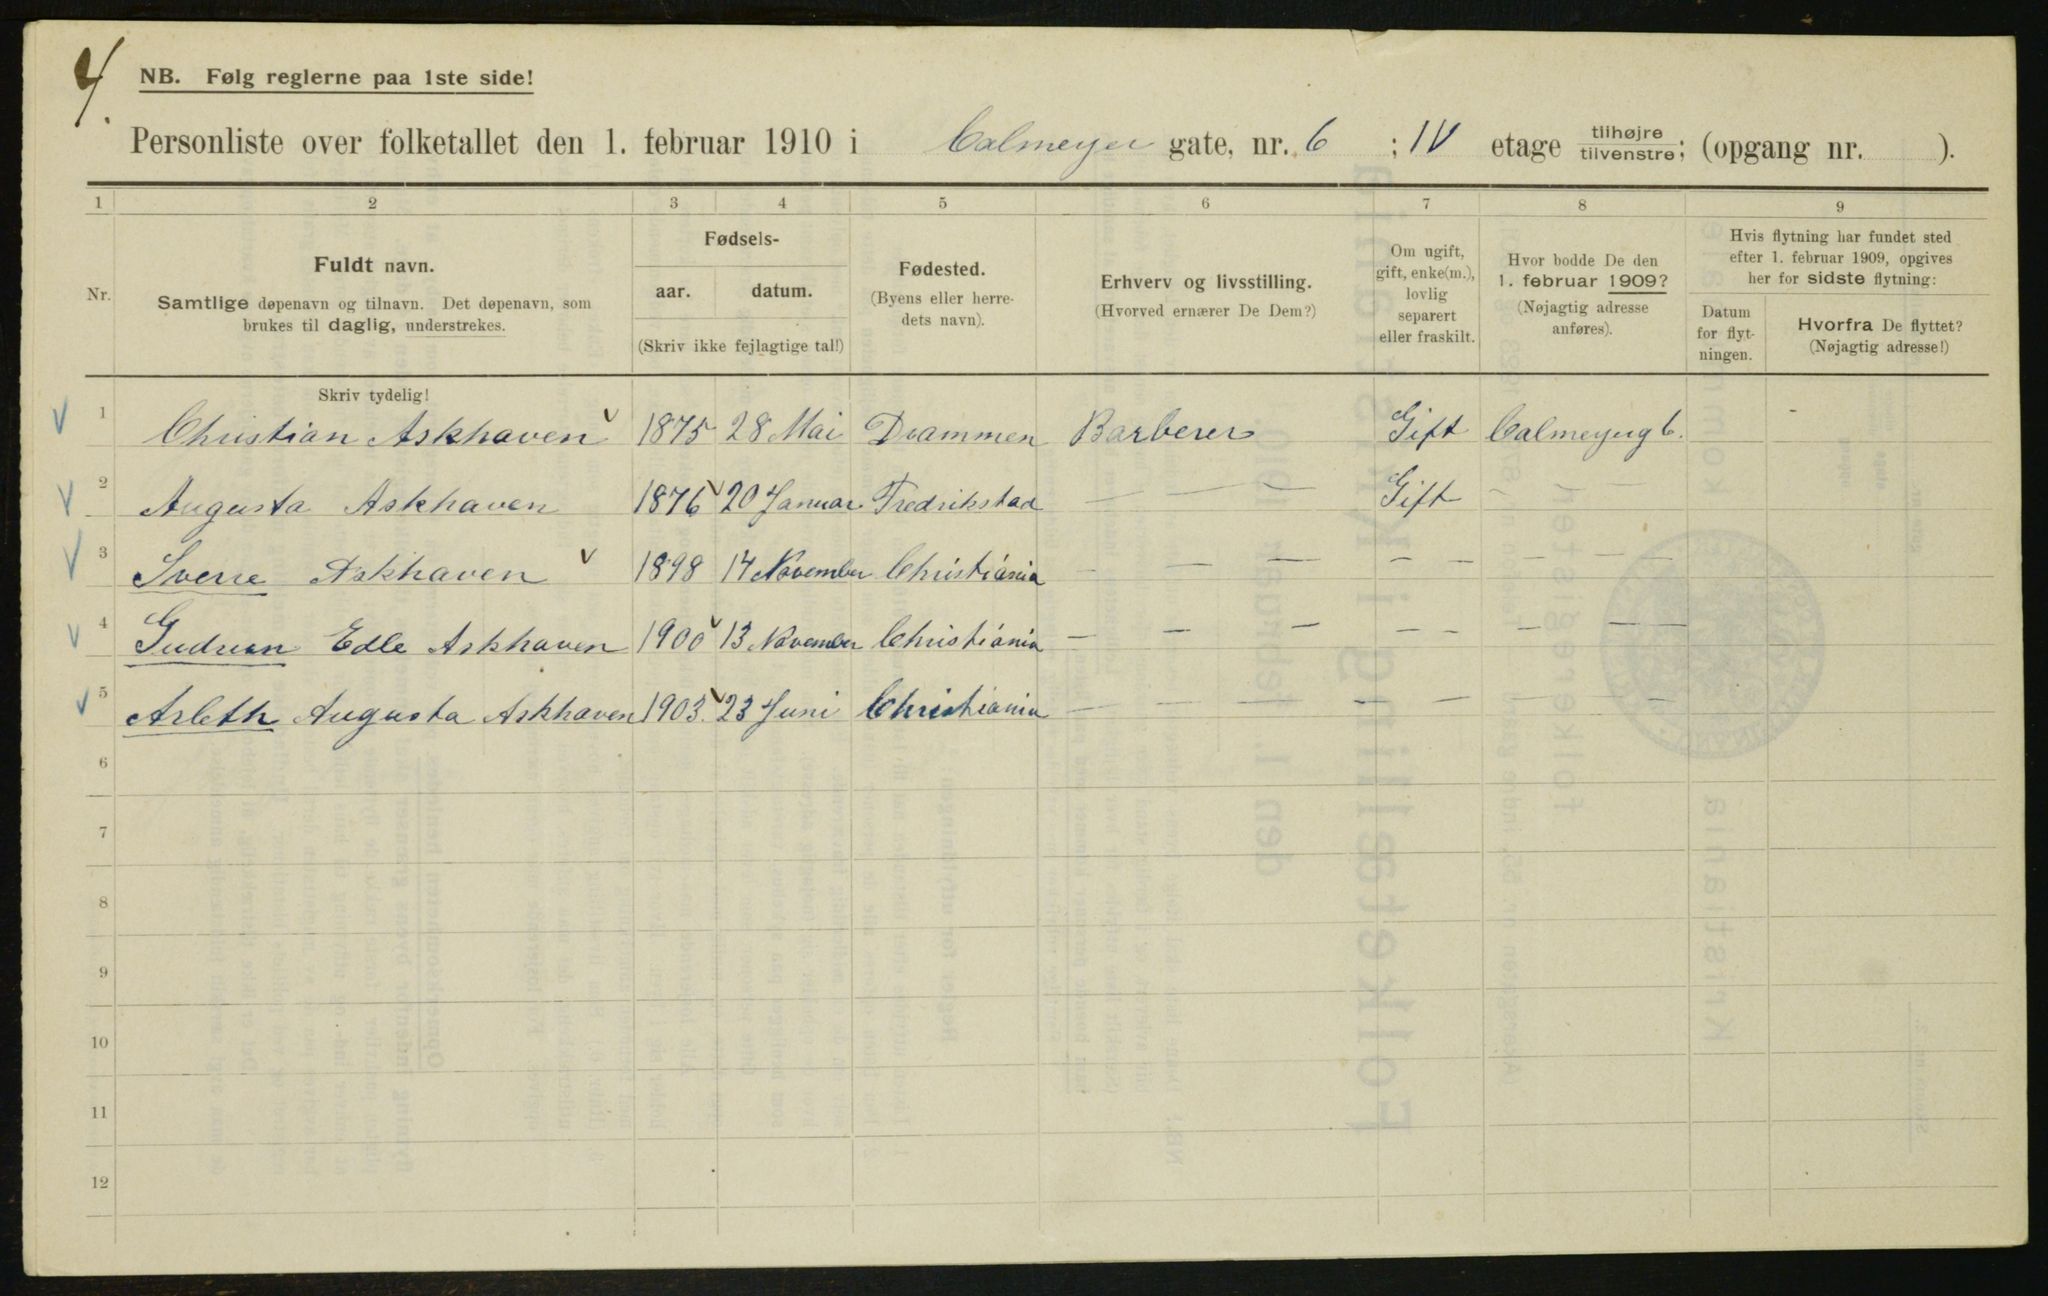 4.
NB. Følg reglerne paa 1ste side!
Personliste over folketallet den 1. februar 1910 i Calmeyer gate, nr. 6 ; IV etage tilhøjre tilvenstre; (opgang nr. ).
1 2 3 4 5 6 7 8 9
Nr.
Fuldt navn.
Samtlige døpenavn og tilnavn. Det døpenavn, som
brukes til daglig, understrekes.
Fødsels-
aar. datum.
(Skriv ikke fejlagtige tal!)
Fødested.
(Byens eller herre-
dets navn).
Erhverv og livsstilling.
(Hvorved ernærer De Dem?)
Om ugift,
gift, enke(m.),
lovlig
separert
eller fraskilt.
Hvor bodde De den
1. februar 1909?
(Nøjagtig adresse
anføres).
Hvis flytning har fundet sted
efter 1. februar 1909, opgives
her for sidste flytning:
Datum
for flyt-
ningen.
Hvorfra De flyttet?
(Nøjagtig adresse!)
Skriv tydelig!
1 Christian Askhaven 1875 28 Mai Drammen Barberer Gift Calmeyerg 6. -
2 Augusta Askhaven 1876 20 Januar Fredrikstad — — — Gift — — —
3 Sverre Askhaven 1898 14 November Christiania — — — — — — — —
4 Gudrun Edle Askhaven 1900 13 November Christiania — — — — — — — —
5 Arleth Augusta Askhaven 1903. 23 Juni Christiania — — — — — — — —
6
7
8
9
10
11
12